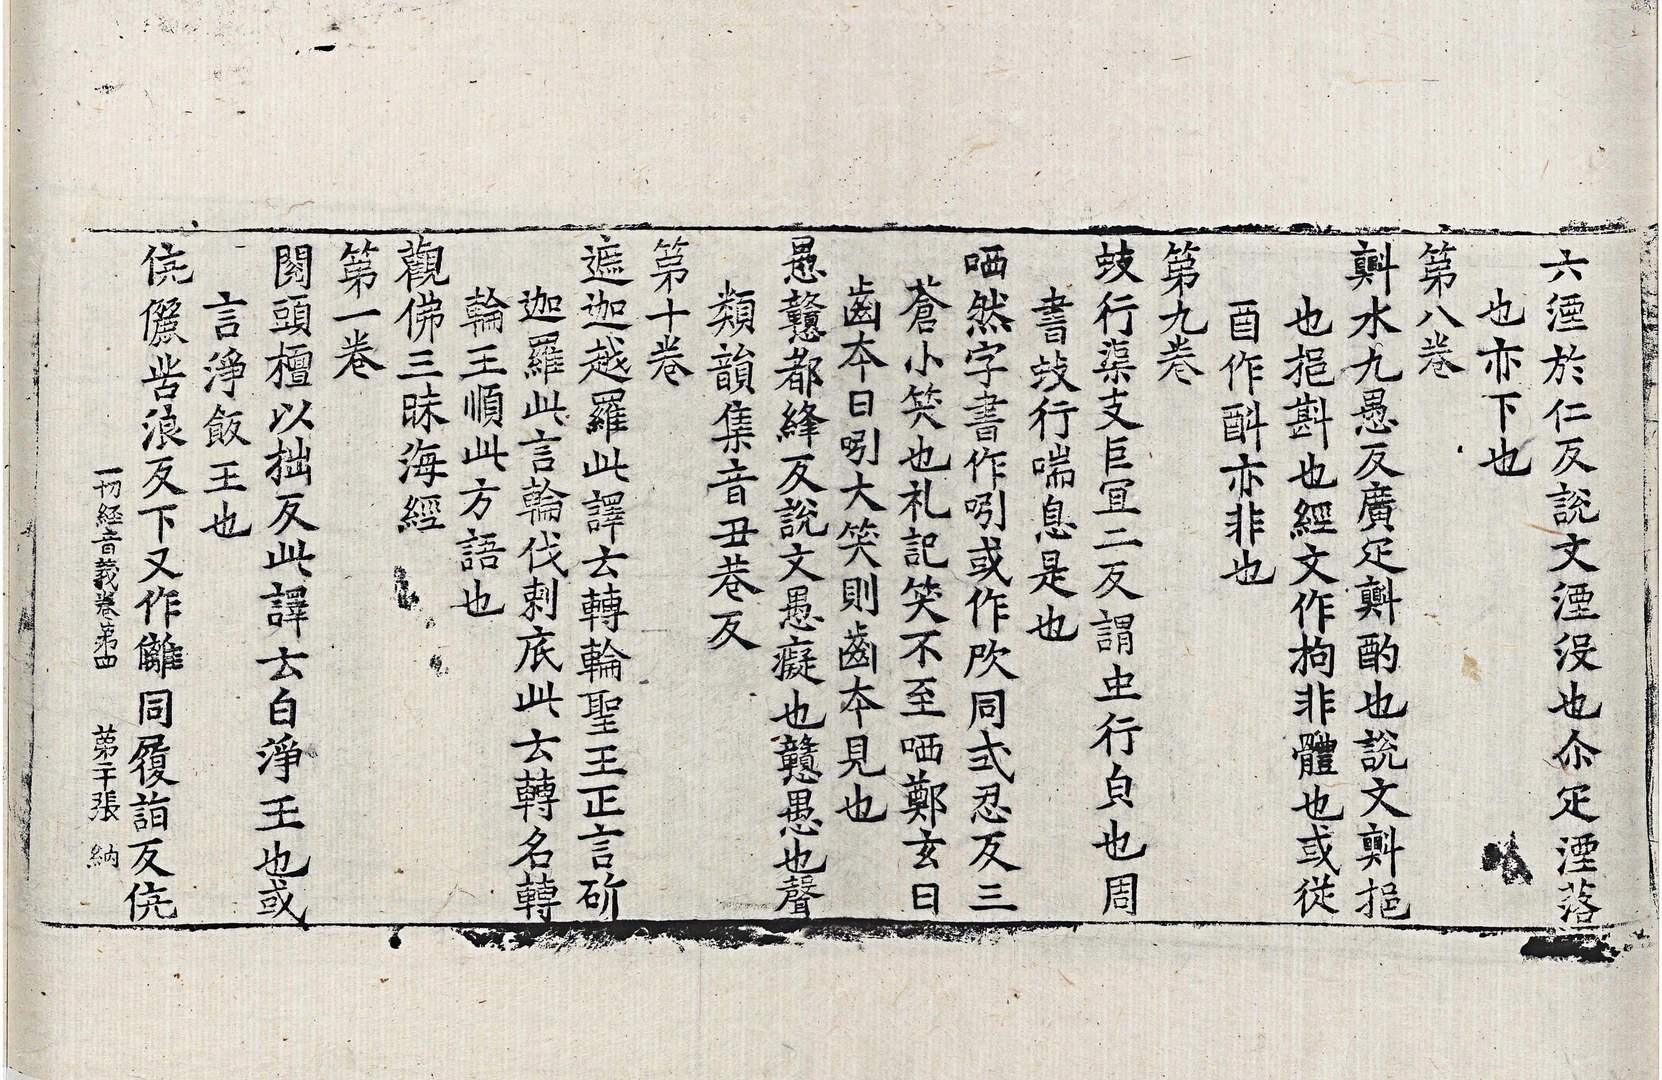 六湮於仁反說文湮没也尒疋湮落
也亦下也
第八卷
㪺水九愚反廣疋㪺酌也說文㪺挹
也挹斟也經文作拘非體也或從
酉作酙亦非也
第九卷
蚑行渠支巨冝二反謂虫行皃也周
書蚑行喘息是也
哂然字書作吲或作欥同式忍反三
蒼小笑也礼記笑不至哂鄭玄曰
齒本曰吲大笑則齒本見也
愚戇都絳反說文愚癡也戇愚也聲
類韻集音丑巷反
第十卷
遮迦越羅此譯云轉輪聖王正言斫
迦羅此言輪伐剌底此云轉名轉
輪王順此方語也
觀佛三昧海經
第一卷
閱頭檀以拙反此譯云白淨王也或
言淨飯王也
俒儷呰浪反下又作離同履詣反俒
一切經音義卷第四 第二十張 納